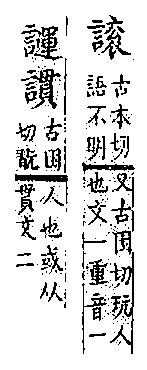 古本切又古困切玩人
語不明也文一重音一
諢謴
古困人也或从
切翫貫文二